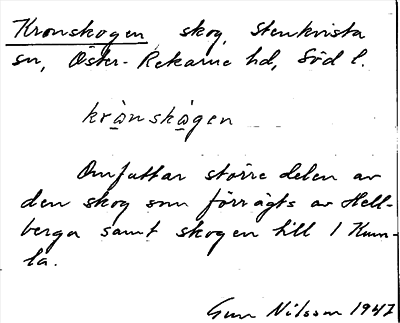 Kronskogen, skog, Stenkvista
sn, Öster-Rekarne hd, Söd l.
krånskågen
Omfattar större delen av
den skog som förr ägts av Hell-
berga samt skogen till 1 Kum-
la.
Gun Nilsson 1947